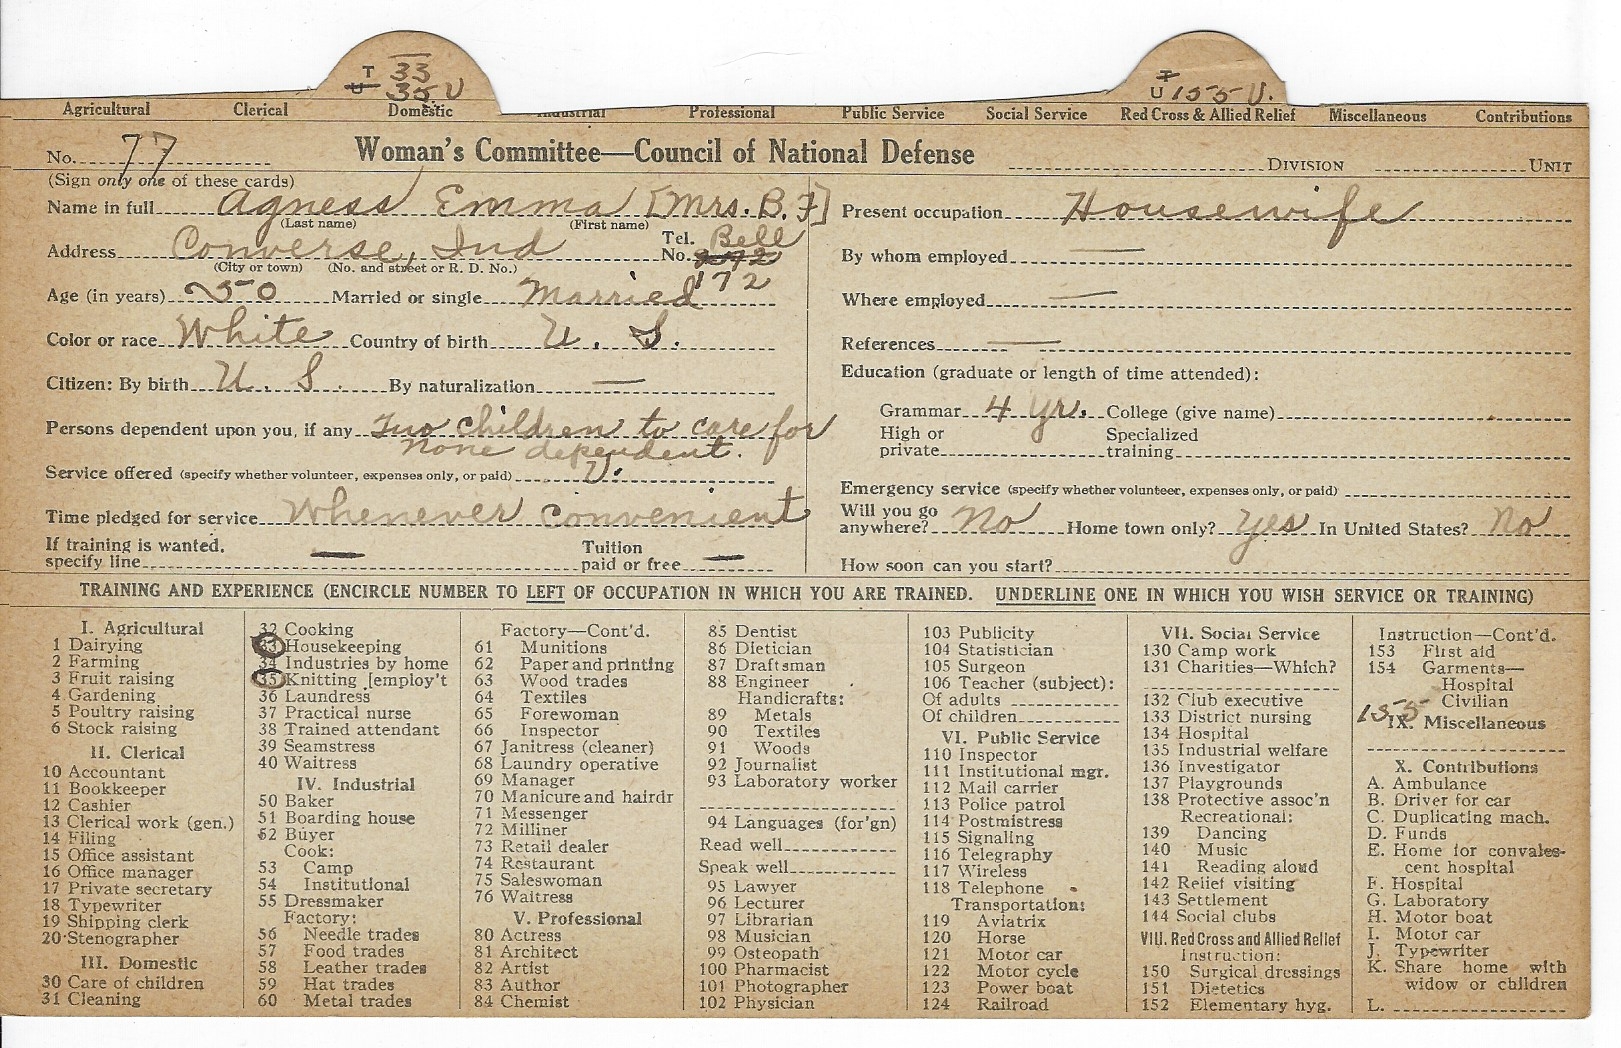 T 33
U 35 U
T
U 155 U.
Agricultural Clerical Domestic Industrial Professional Public Service Social Service Red Cross & Allied Relief Miscellaneous Contributions
No. 77 Woman's Committee—Council of National Defense DIVISION UNIT
(Sign only one of these cards)
Name in full Agness Emma [Mrs. B. F]
(Last name) (First name)
Address Converse, Ind Tel. No. Bell 172
(City or town) (No. and street or R. D. No.)
Age (in years) 50 Married or single Married
Color or race White Country of birth U. S.
Citizen: By birth U. S. By naturalization —
Persons dependent upon you, if any Two children to care for
None dependent.
Service offered (specify whether volunteer, expenses only, or paid) V.
Time pledged for service Whenever convenient
If training is wanted, specify line — Tuition paid or free —
Present occupation Housewife
By whom employed —
Where employed —
References —
Education (graduate or length of time attended):
Grammar 4 yr. College (give name)
High or private Specialized training
Emergency service (specify whether volunteer, expenses only, or paid)
Will you go anywhere? No Home town only? Yes In United States? No
How soon can you start?
TRAINING AND EXPERIENCE (ENCIRCLE NUMBER TO LEFT OF OCCUPATION IN WHICH YOU ARE TRAINED. UNDERLINE ONE IN WHICH YOU WISH SERVICE OR TRAINING)
I. Agricultural
1 Dairying
2 Farming
3 Fruit raising
4 Gardening
5 Poultry raising
6 Stock raising
II. Clerical
10 Accountant
11 Bookkeeper
12 Cashier
13 Clerical work (gen.)
14 Filing
15 Office assistant
16 Office manager
17 Private secretary
18 Typewriter
19 Shipping clerk
20 Stenographer
III. Domestic
30 Care of children
31 Cleaning
32 Cooking
33 Housekeeping
34 Industries by home
35 Knitting [employ't
36 Laundress
37 Practical nurse
38 Trained attendant
39 Seamstress
40 Waitress
IV. Industrial
50 Baker
51 Boarding house
52 Buyer
Cook:
53 Camp
54 Institutional
55 Dressmaker
Factory:
56 Needle trades
57 Food trades
58 Leather trades
59 Hat trades
60 Metal trades
Factory—Cont'd.
61 Munitions
62 Paper and printing
63 Wood trades
64 Textiles
65 Forewoman
66 Inspector
67 Janitress (cleaner)
68 Laundry operative
69 Manager
70 Manicure and hairdr
71 Messenger
72 Milliner
73 Retail dealer
74 Restaurant
75 Saleswoman
76 Waitress
V. Professional
80 Actress
81 Architect
82 Artist
83 Author
84 Chemist
85 Dentist
86 Dietician
87 Draftsman
88 Engineer
Handicrafts:
89 Metals
90 Textiles
91 Woods
92 Journalist
93 Laboratory worker
94 Languages (for'gn)
Read well
Speak well
95 Lawyer
96 Lecturer
97 Librarian
98 Musician
99 Osteopath
100 Pharmacist
101 Photographer
102 Physician
103 Publicity
104 Statistician
105 Surgeon
106 Teacher (subject):
Of adults
Of children
VI. Public Service
110 Inspector
111 Institutional mgr.
112 Mail carrier
113 Police patrol
114 Postmistress
115 Signaling
116 Telegraphy
117 Wireless
118 Telephone
Transportation:
119 Aviatrix
120 Horse
121 Motor car
122 Motor cycle
123 Power boat
124 Railroad
VII. Social Service
130 Camp work
131 Charities—Which?
132 Club executive
133 District nursing
134 Hospital
135 Industrial welfare
136 Investigator
137 Playgrounds
138 Protective assoc'n
Recreational:
139 Dancing
140 Music
141 Reading aloud
142 Relief visiting
143 Settlement
144 Social clubs
VIII. Red Cross and Allied Relief
Instruction:
150 Surgical dressings
151 Dietetics
152 Elementary hyg.
Instruction—Cont'd.
153 First aid
154 Garments—
Hospital
Civilian
155
IX. Miscellaneous
X. Contributions
A. Ambulance
B. Driver for car
C. Duplicating mach.
D. Funds
E. Home for convales-
cent hospital
F. Hospital
G. Laboratory
H. Motor boat
I. Motor car
J. Typewriter
K. Share home with
widow or children
L.